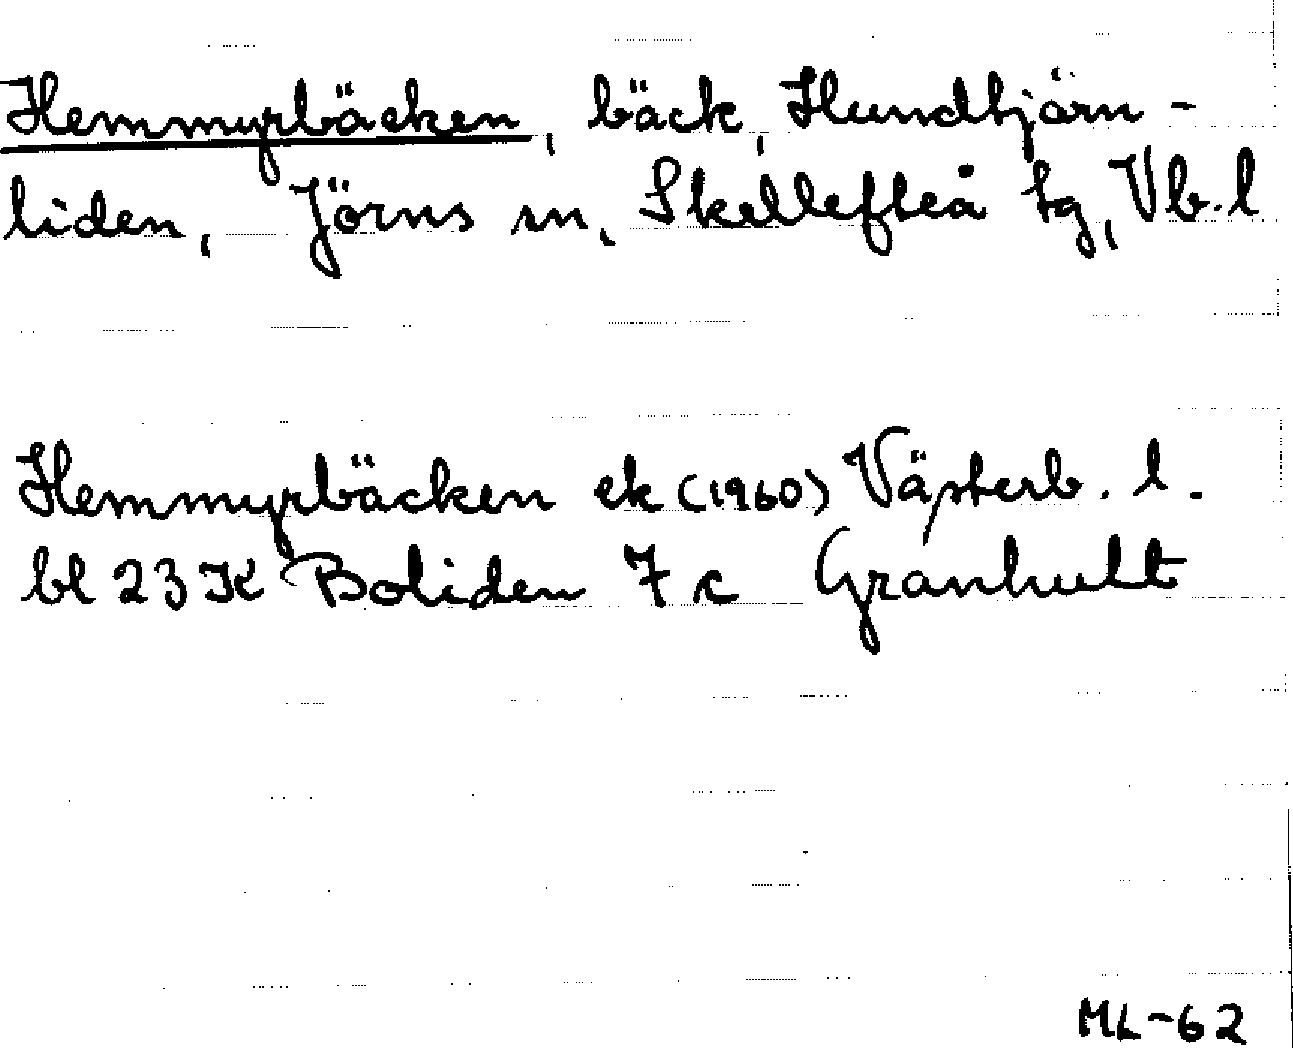 Hemmyrbäcken, bäck, Hundtjärn-
liden, Jörns sn, Skellefteå tg, Vb.l
Hemmyrbäcken ek (1960) Västerb. l.
bl 23 K Boliden 7 c Granhult
ML-62